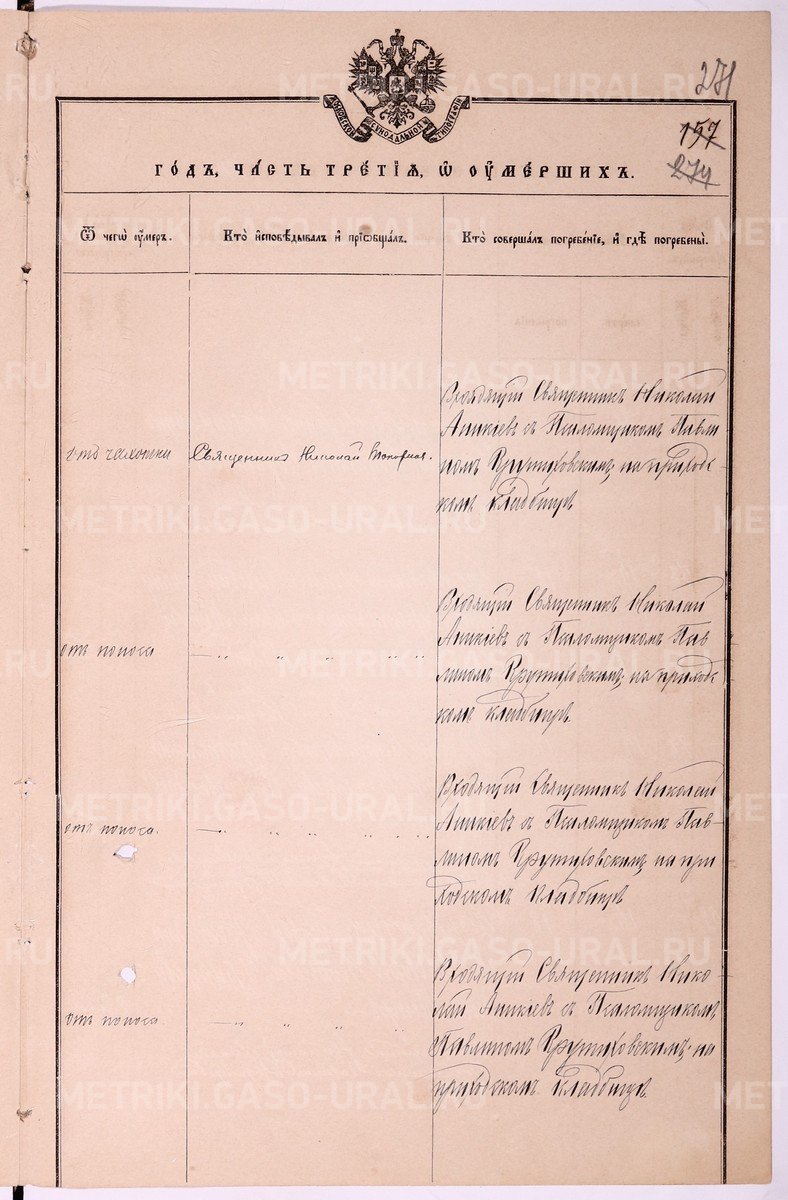 271
157
274
МОСКОВСКОЙ СѴНОДАЛЬНОЙ ТИПОГРАФІИ
ГО́ДЪ, ЧА́СТЬ ТРЕ́ТІѦ, Ѡ҆ ОУ҆МЕ́РШИХЪ.
Ѿ чегѡ̀ оу҆́меръ.
Кто̀ и҆сповѣ́дывалъ и҆ прїѡбща́лъ.
Кто̀ соверша́лъ погребе́нїе, и҆ гдѣ̀ погребены̀.
отъ чахотки
Священникъ Николай
Входящій Священникъ Николай
Аникіевъ съ Псаломщикомъ Павли
номъ Крутиховскимъ, на приходс
комъ кладбищѣ
отъ поноса
— „ „ „ „ „
Входящій Священникъ Николай
Аникіевъ съ Псаломщикомъ Пав
линомъ Крутиховскимъ, на приходс
комъ кладбищѣ.
отъ поноса.
— „ „ „ „ „
Входящій Священникъ Николай
Аникіевъ съ Псаломщикомъ Пав-
линомъ Крутиховскимъ, на при
ходскомъ кладбищѣ
отъ поноса.
— „ „ „ „ „
Входящій Священникъ Нико-
лай Аникіевъ съ Псаломщикомъ
Павлиномъ Крутиховскимъ, на
приходскомъ кладбищѣ.
METRIKI.GASO-URAL.RU